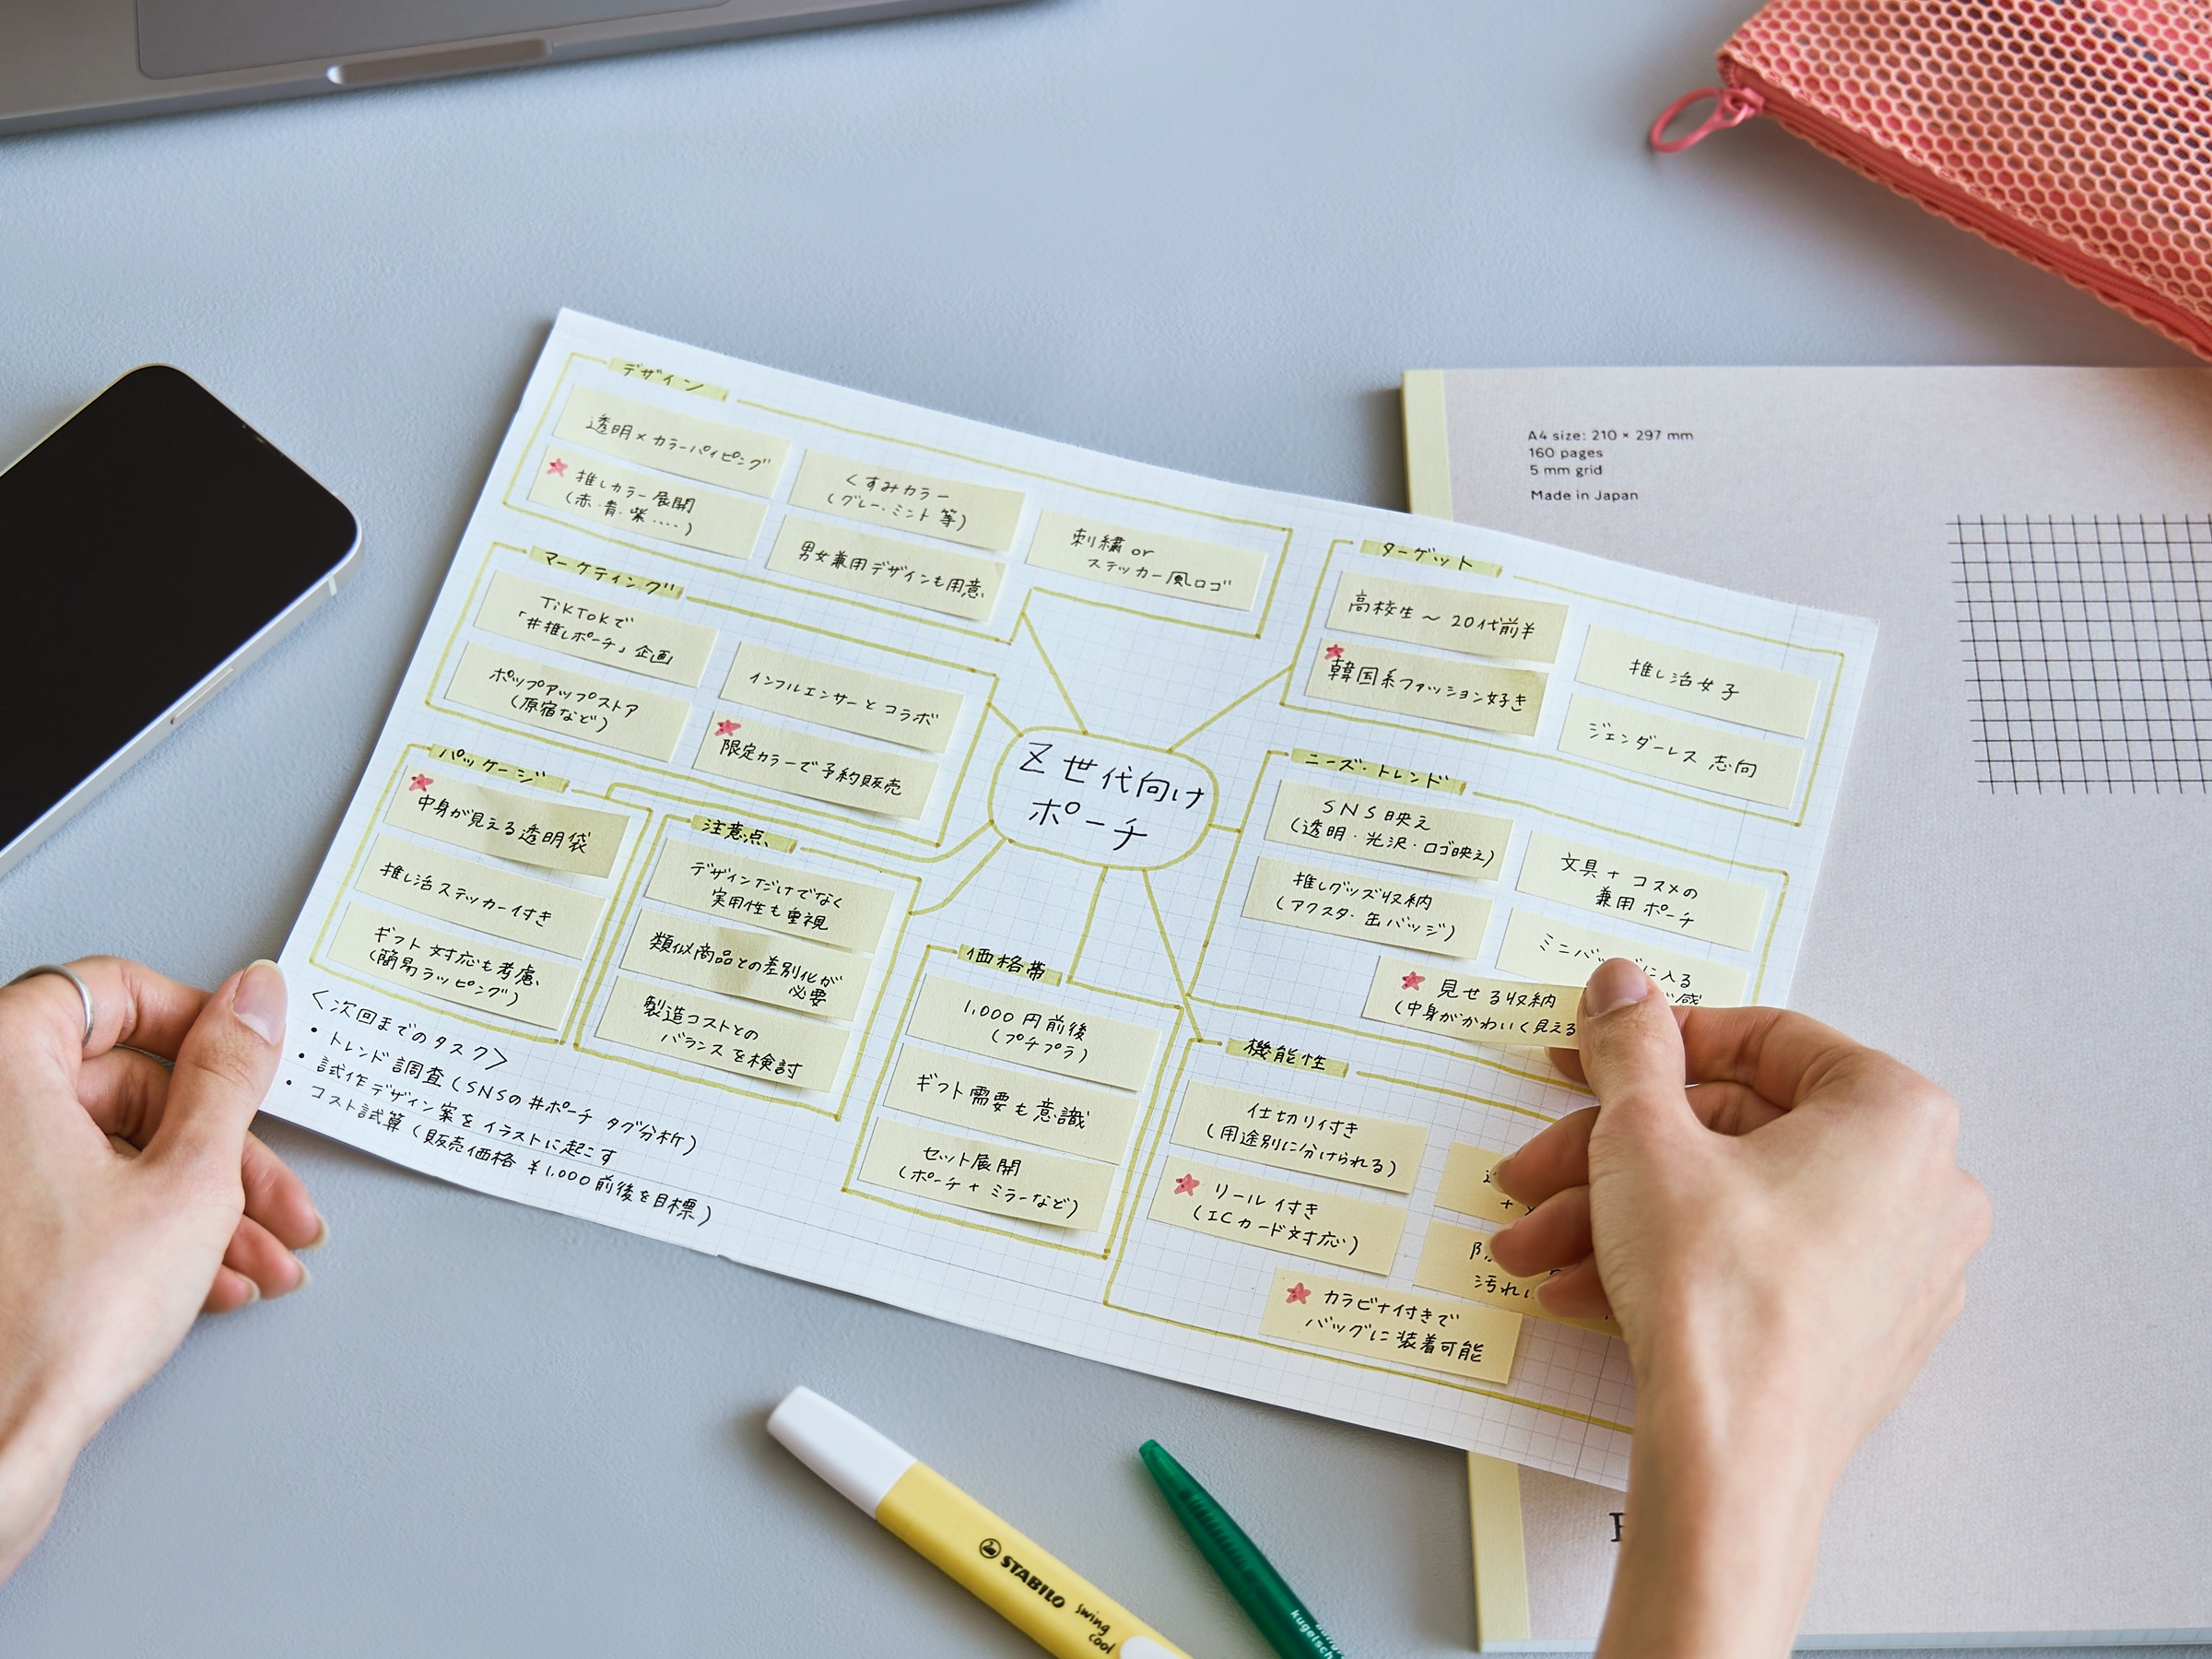 デザイン
透明×カラーパイピング
推しカラー展開
(赤・青・紫‥‥)
くすみカラー
(グレー・ミント等)
男女兼用デザインも用意
刺繍or
ステッカー風ロゴ
マーケティング
TikTokで
「#推しポーチ」企画
ポップアップストア
(原宿など)
インフルエンサーとコラボ
限定カラーで予約販売
パッケージ
中身が見える透明袋
推し活ステッカー付き
ギフト対応も考慮
(簡易ラッピング)
注意点
デザインだけでなく
実用性も重視
類似商品との差別化が
必要
製造コストとの
バランスを検討
Z世代向け
ポーチ
ターゲット
高校生～20代前半
韓国系ファッション好き
推し活女子
ジェンダーレス志向
ニーズ・トレンド
SNS映え
(透明・光沢・ロゴ映え)
推しグッズ収納
(アクスタ・缶バッジ)
文具+コスメの
兼用ポーチ
ミニバ に入る
感
見せる収納
(中身がかわいく見える
価格帯
1,000円前後
(プチプラ)
ギフト需要も意識
セット展開
(ポーチ+ミラーなど)
機能性
仕切り付き
(用途別に分けられる)
リール付き
(ICカード対応)
カラビナ付きで
バッグに装着可能
+
汚れ
<次回までのタスク>
• トレンド調査(SNSの#ポーチ タグ分析)
• 試作デザイン案をイラストに起こす
• コスト試算(販売価格¥1,000前後を目標)
A4 size: 210 × 297 mm
160 pages
5 mm grid
Made in Japan
STABILO
swing
cool